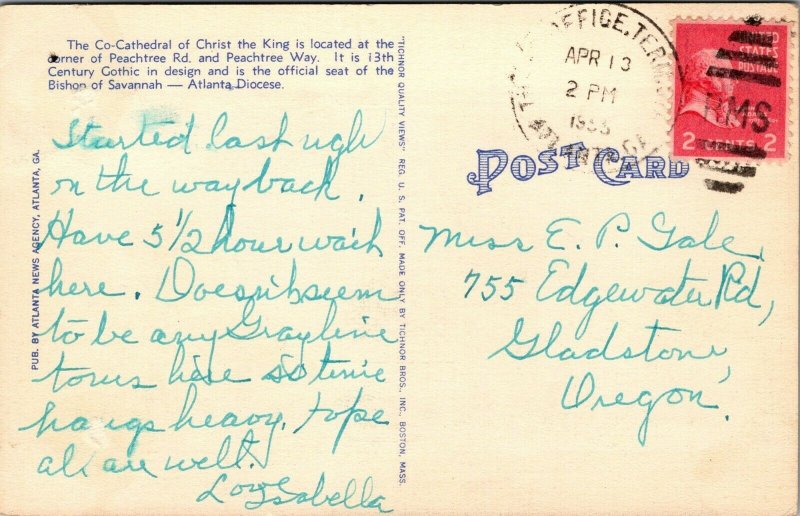 The Co-Cathedral of Christ the King is located at the
corner of Peachtree Rd. and Peachtree Way. It is 13th
Century Gothic in design and is the official seat of the
Bishop of Savannah — Atlanta Diocese.
Started last
on the way back.
Have 5 1/2 hour wait
here. Doesn't seem
to be any Grayline
tours here so time
hangs heavy. Hope
all are well.
Love
Isabella
PUB. BY ATLANTA NEWS AGENCY, ATLANTA, GA.
"TICHNOR QUALITY VIEWS" REG. U. S. PAT. OFF. MADE ONLY BY TICHNOR BROS., INC., BOSTON, MASS.
POST CARD
OFFICE, TERM
APR 13
2 PM
ATLANTA, GA.
RMS
UNITED
STATES
POSTAGE
ADAMS
2 CENTS 2
Miss E. P. Gale,
755 Edgewater Rd,
Gladstone,
Oregon.